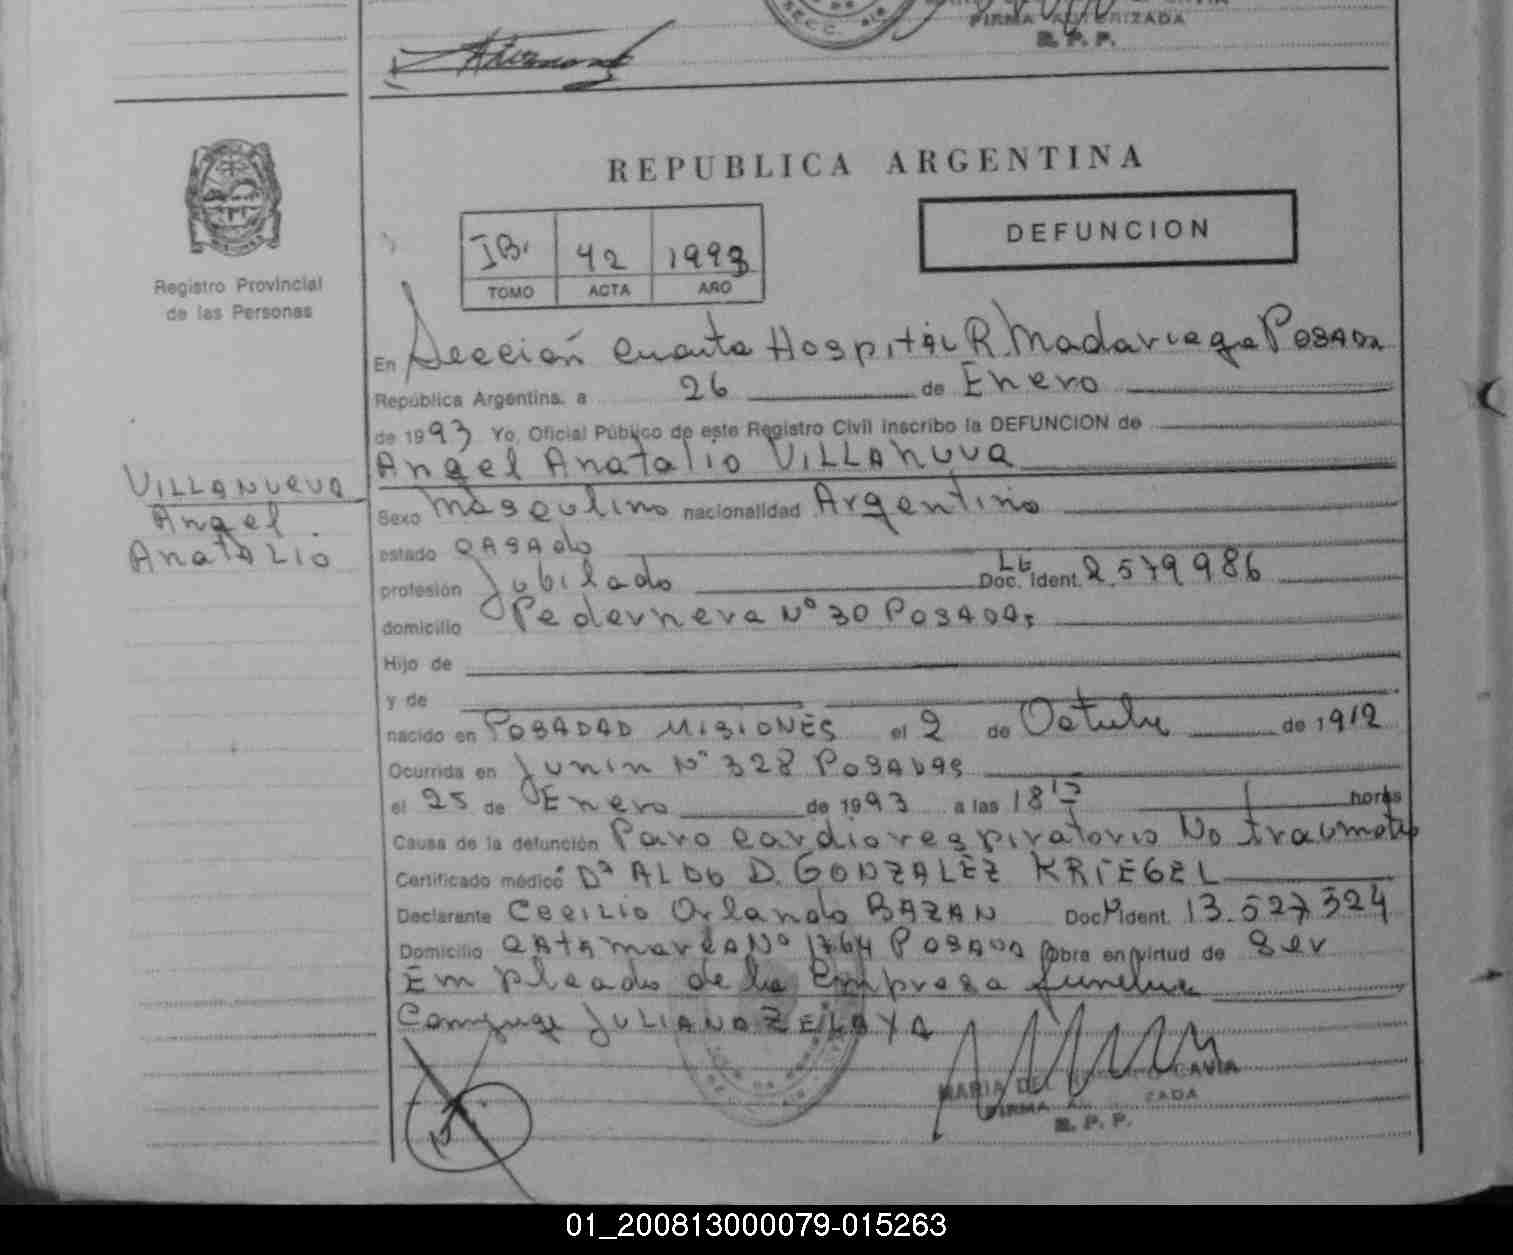 FIRMA AUTORIZADA
R. P. P.
REPUBLICA ARGENTINA
DEFUNCION
IB. 42 1993
TOMO ACTA AÑO
Registro Provincial
de las Personas
En Sección Cuarta Hospital R. Madariaga Posada
República Argentina, a 26 de Enero
de 1993 Yo, Oficial Público de este Registro Civil inscribo la DEFUNCION de
Angel Anatalio VILLANUVA
VILLANUEVA
Angel
Anatalio
Sexo Masculino nacionalidad Argentino
estado casado
profesión Jubilado Doc. Ident. LE 2.579986
domicilio Pederneva Nº 30 Posadas
Hijo de
y de
nacido en POSADAD MISIONES el 2 de Octubre de 1912
Ocurrida en Junin Nº 328 Posadas
el 25 de Enero de 1993 a las 18 horas
Causa de la defunción Paro cardiorespiratorio No traumat
Certificado médico Dr ALDO D. GONZALEZ KRIEGEL
Declarante Cecilio Orlando BAZAN Doc. Ident. 13.527324
Domicilio catamarca Nº 1764 Posada Obra en virtud de ser
Empleado de la Empresa funebre
Conyuge JULIANA ZELAYA
MARIA DEL CAVIA
FIRMA ZADA
R. P. P.
01_200813000079-015263